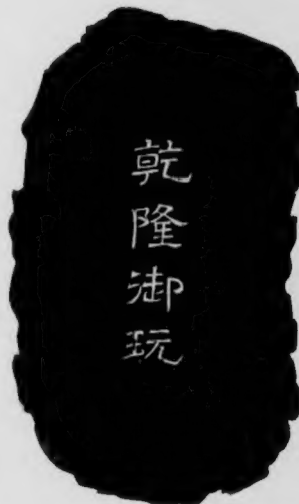 乾隆御玩